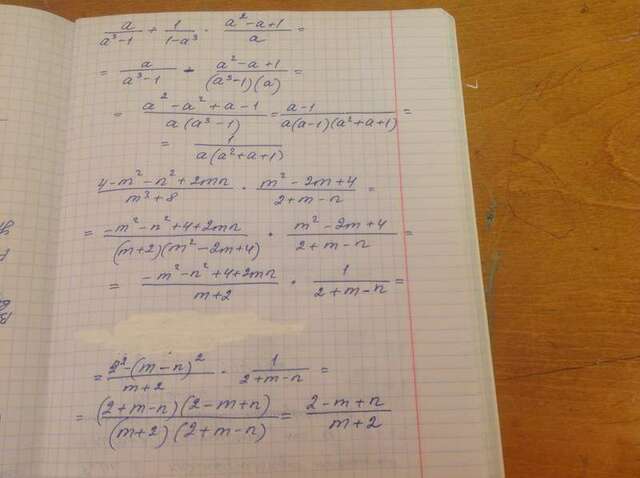 a/(a³-1) + 1/(1-a³) · (a²-a+1)/a =
= a/(a³-1) - (a²-a+1)/((a³-1)(a)) =
= (a²-a²+a-1)/(a(a³-1)) = (a-1)/(a(a-1)(a²+a+1)) =
= 1/(a(a²+a+1))
(4-m²-n²+2mn)/(m³+8) · (m²-2m+4)/(2+m-n) =
= (-m²-n²+4+2mn)/((m+2)(m²-2m+4)) · (m²-2m+4)/(2+m-n) =
= (-m²-n²+4+2mn)/(m+2) · 1/(2+m-n) =
= (2²-(m-n)²)/(m+2) · 1/(2+m-n) =
= ((2+m-n)(2-m+n))/((m+2)(2+m-n)) = (2-m+n)/(m+2)